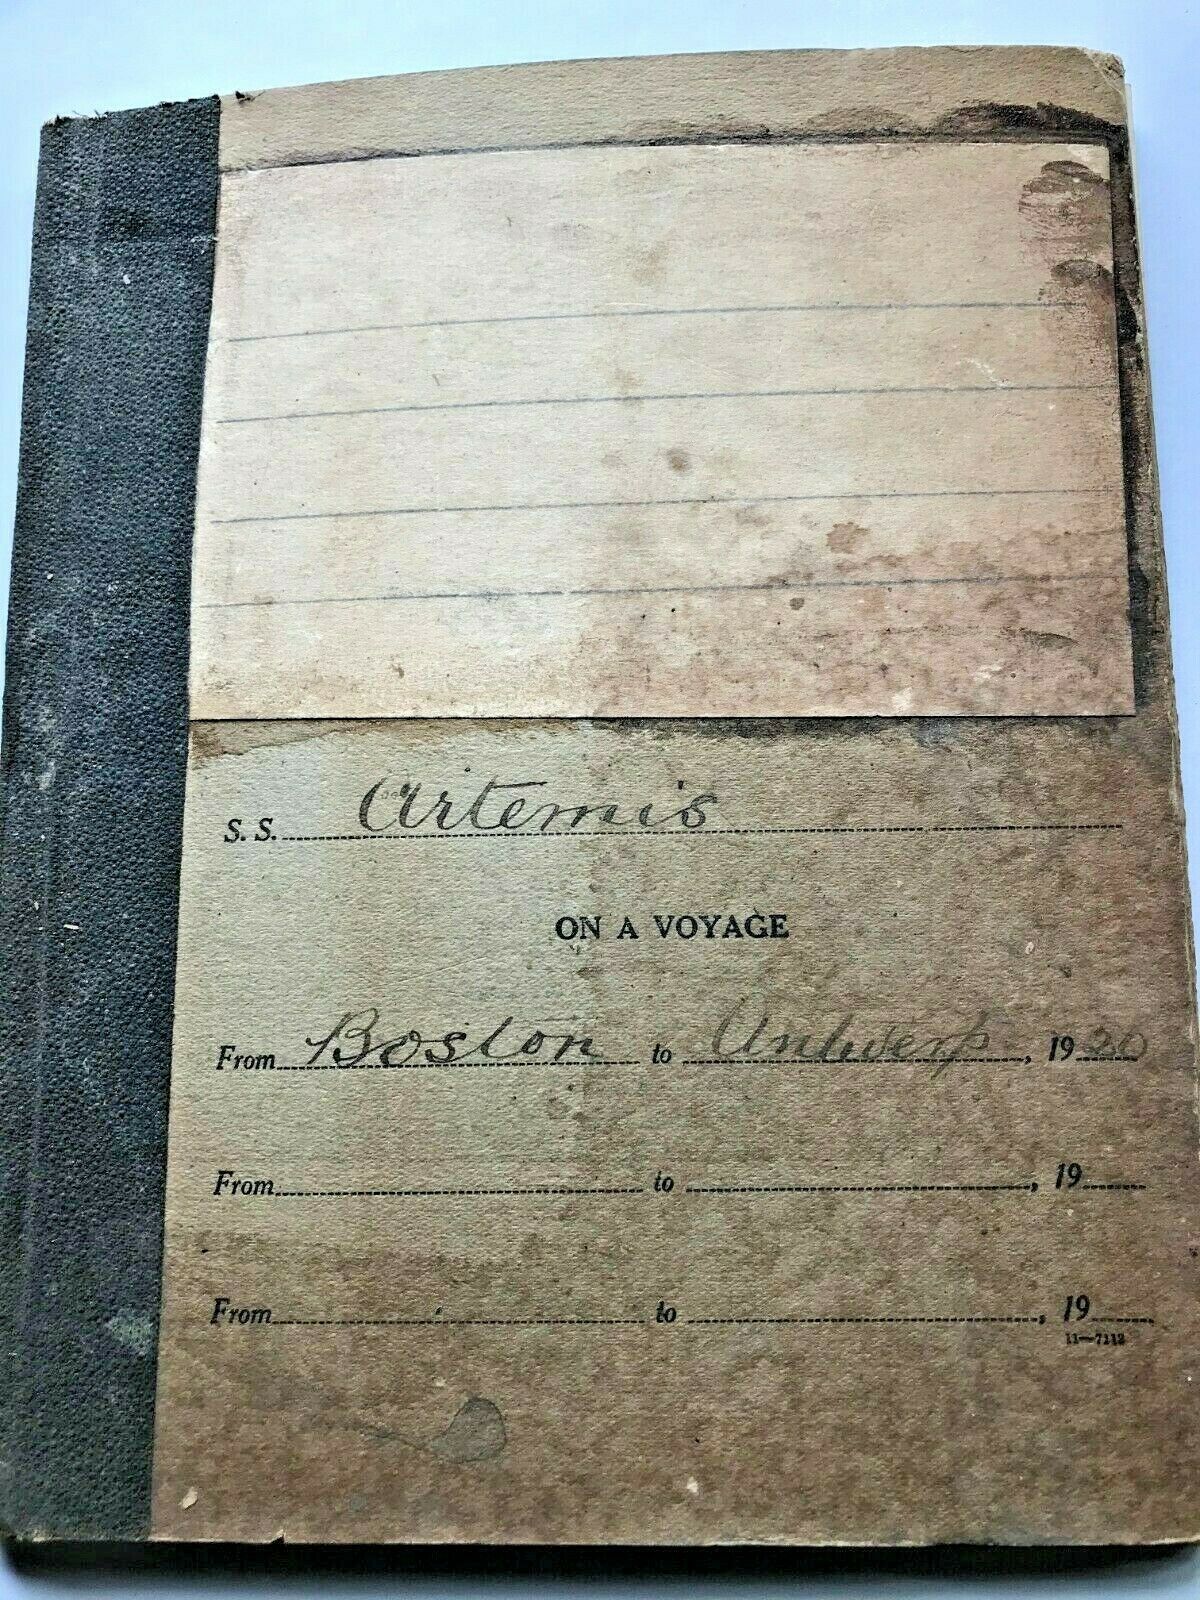 S. S. Artemis
ON A VOYAGE
From Boston to Antwerp, 1920
From to , 19
From to , 19
11—7112